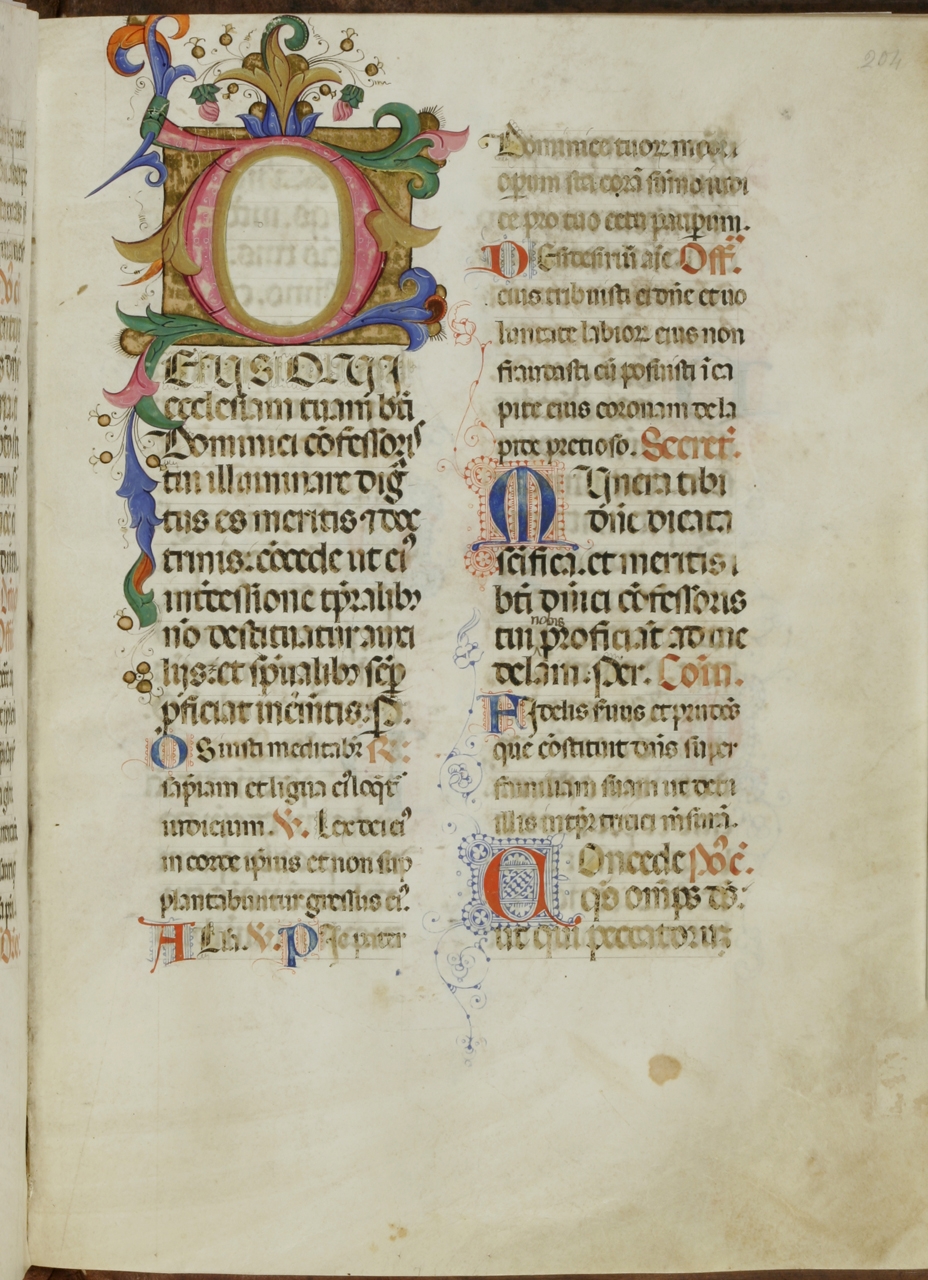 204
EUS QUI
ecclesiam tuam bti
Dominici cōfessoris
tui illuminare dig
tus es meritis ⁊ doc
trinis: cōcede ut ei⁹
intcessione tp̄ralibꝫ
nō destituatur auxi
lijs: et sp̄ualibꝫ semp̄
p̄ficiat incrmtis: P.
OS iusti meditabr R:
sapiam et ligua ei⁹ loq̄t᷑
iudicium. V. Lex dei ei⁹
in corde ip̄ius et non sup
plantabuntur gressus ei⁹.
All'a. V. Pie pater
Dominice tuor memor
opum sta corā sūmo iudi
ce pro tuo cetu paupum.
DEsideriū aīe Off.
eius tribuisti ei dn̄e et uo
luntate labior eius non
fraudasti eū posuisti ī ca
pite eius coronam de la
pide pretioso. Secret.
MUnera tibi
dn̄e dicata
sc̄ifica. et meritis
bt̄i dn̄ici cōfessoris
nobis
tui proficiāt ad me
delam. Per. Com.
FIdelis suus et prudēs
que cōstituit dn̄s super
familiam suam ut det
illis intp̄r tritici m̄surā.
COncede Po᷑c.
qs om̄ps ds:
ut qui peccatorum